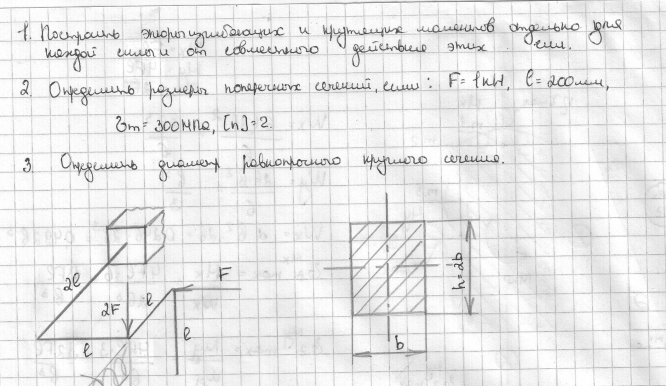 1. Построить эпюры изгибающих и крутящих моментов отдельно для
каждой силы и от совместного действия этих сил.
2. Определить размеры поперечных сечений, если: F=1кН, l=200мм,
σт=300МПа, [n]=2.
3. Определить диаметр равнопрочного круглого сечения.
2l
2F
l
l
F
l
h=2b
b